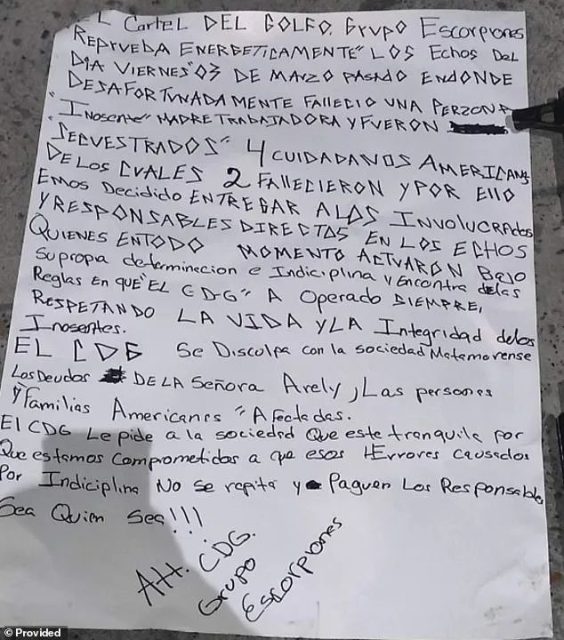 EL Cartel DEL GOLFO. Grupo Escorpiones
REPRUEDA ENERGETICAMENTE" LOS Echos DEL
DIA VIERNES" 03 DE MARZO PASADO ENDONDE
DESAFORTUNADAMENTE FALLECIO UNA PERZONA
"INosente" MADRE TRABAJADORA Y FUERON
SECUESTRADOS" 4 CUIDADANOS AMERICANS
DE LOS CUALES 2 FALLECIERON Y POR ELLO
EMOS DECIDIDO ENTREGAR A LOS INVOLUCRADOS
Y RESPONSABLES DIRECTOS EN LOS ECHOS
QUIENES ENTODO MOMENTO ACTUARON BAJO
Su propia determinacion e Indiciplina y encontra delas
Reglas en que "EL CDG" A Operado SIEMPRE,
RESPETANDO LA VIDA Y LA Integridad delos
Inosentes.
EL CDG Se Disculpa con la sociedad Matamorense
Los Deudos DE LA Señora Arely, Las personas
Y Familias Americanas "Afectadas.
El CDG Le pide a la sociedad Que este tranquila por
Que estamos Comprometidos a que esos Errores causados
Por Indiciplina No se repita y Paguen Los Responsables
Sea Quien Sea!!!
ATT. CDG.
Grupo
Escorpiones
Provided